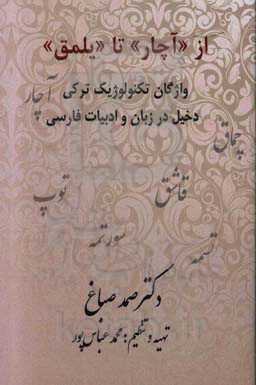 از «آچار» تا «یلمق»
واژگان تکنولوژیک ترکی
دخیل در زبان و ادبیات فارسی
آچار
چماق
قاشق
توپ
سورتمه
تسمه
دکتر صمد صباغ
تهیه و تنظیم: محمد عباس‌پور